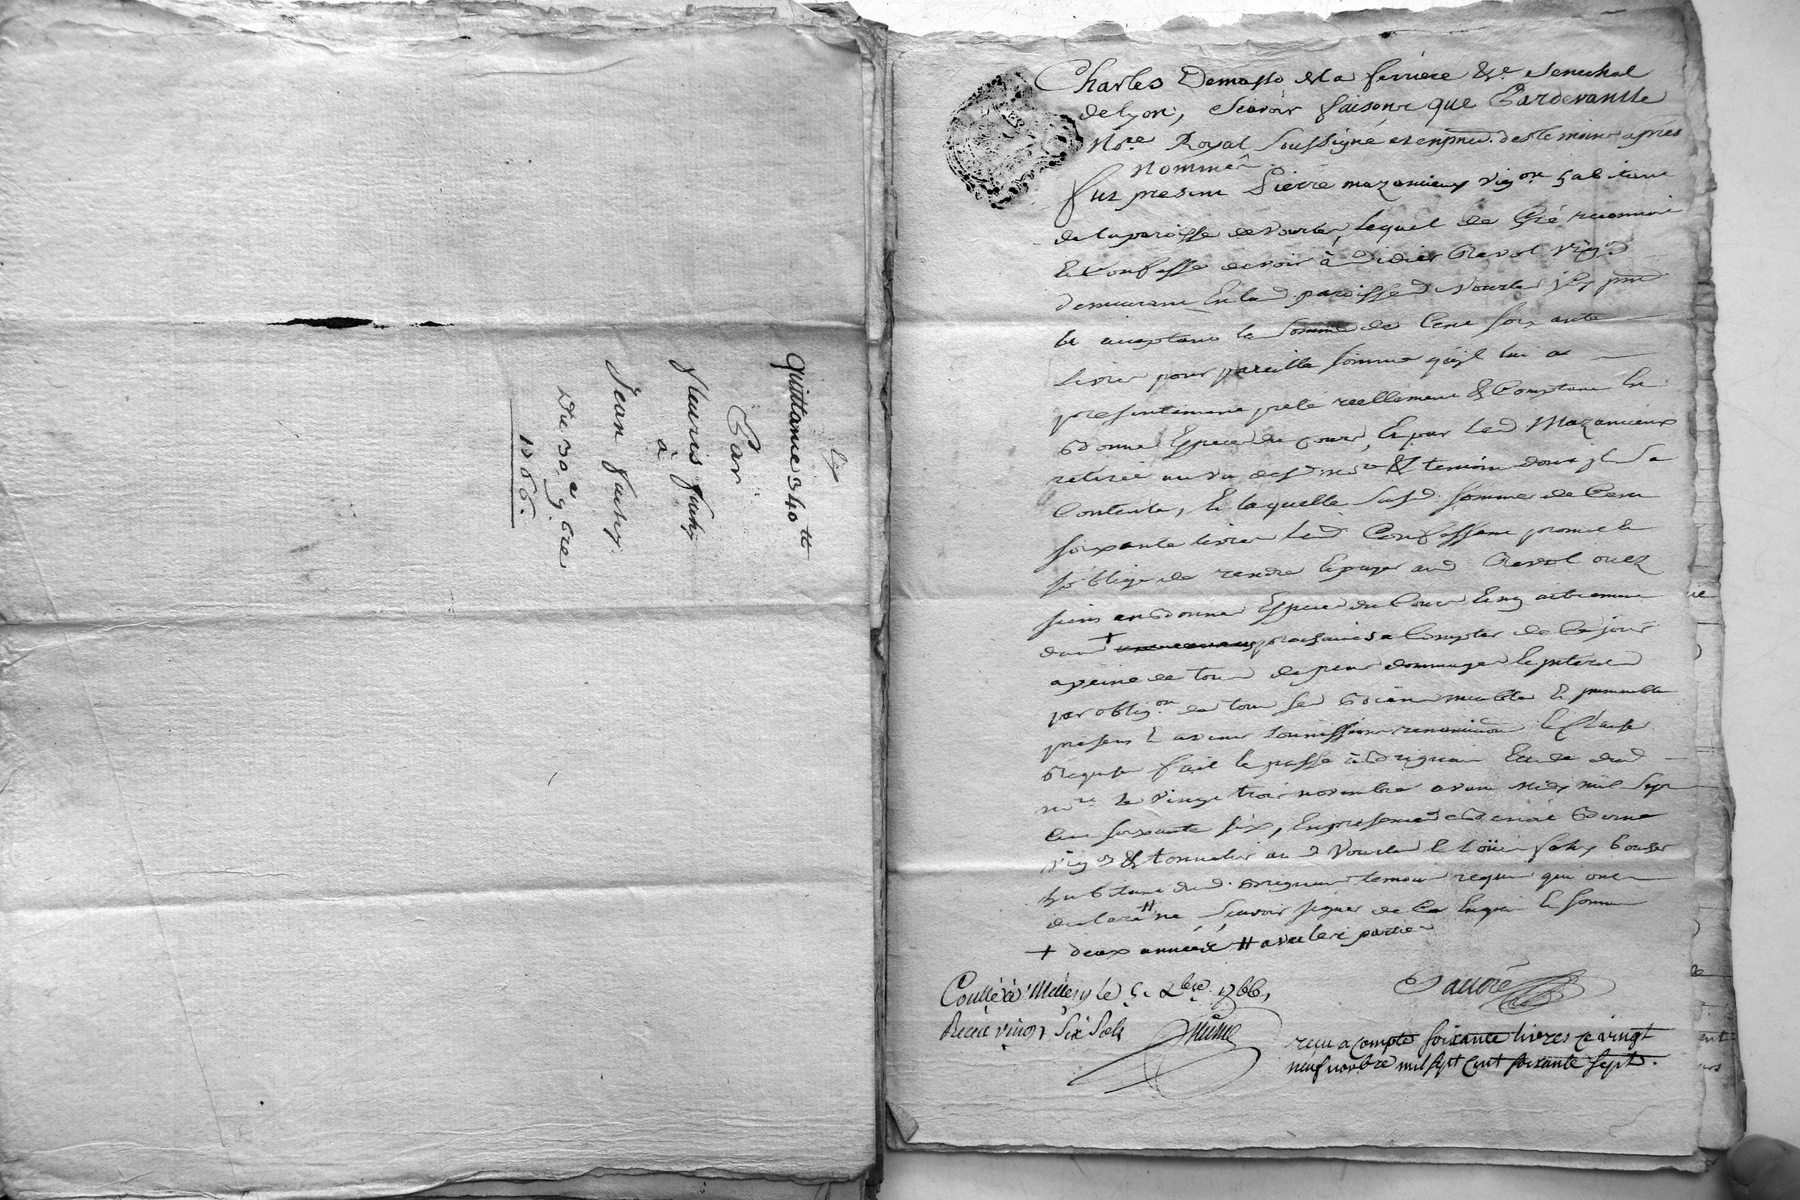 Quittance 340 tt
Par
fleuris fahy
à
Jean fahy
Du 30e 9bre
1766.
Charles Demasso de la ferriere &c. Senechal
de lyon, Scavoir faisons que Pardevant le
No.re Royal Soussigné et en pnce. des temoins après
nommés
fut present Pierre mazancieux vig.on habitant
de la paroisse de vourles, lequel de Gré reconnoit
Et Confesse devoir à Didier Ravot vig.on
demeurant En lad paroisse d Vourles icy pnt
Et acceptant la Somme de Cent soixante
livres pour pareille somme qu'il lui a
presentement preté reellement & Comptant En
Bonnes Especes du cours, Et par led Mazancieux
retirée au vu desd no.re & temoins dont il Se
Contente, Et laquelle Susd. Somme de Cent
soixante livres led Confessant promet Et
s'oblige de rendre Et payer aud Ravot ou ez
siens en Bonnes Especes du Cours
dans + prochaines a Compter de Ce jour
a peine de tous depens dommages Et interets
par oblig.on de tous ses Biens meubles Et immeubles
presens & avenir Soumissions renonciations Et Clauses
Requises fait Et passé à Brignais Etude dud
no.re le vingt trois novembre avant Midy mil Sept
Cent soixante six, En presence de
vig.on & tonnelier aud Vourles Et loüis fahy
habitant dud. Brignais temoins requis qui ont
declaré # ne Scavoir signer de Ce Enquis Et Sommés
+ deux années # avec les parties
Collé à Millery le 5. Xbre. 1766,
Recu vingt Six Sols
recu a compte soixante livres ce vingt
neuf novbre mil sept cent soixante sept.